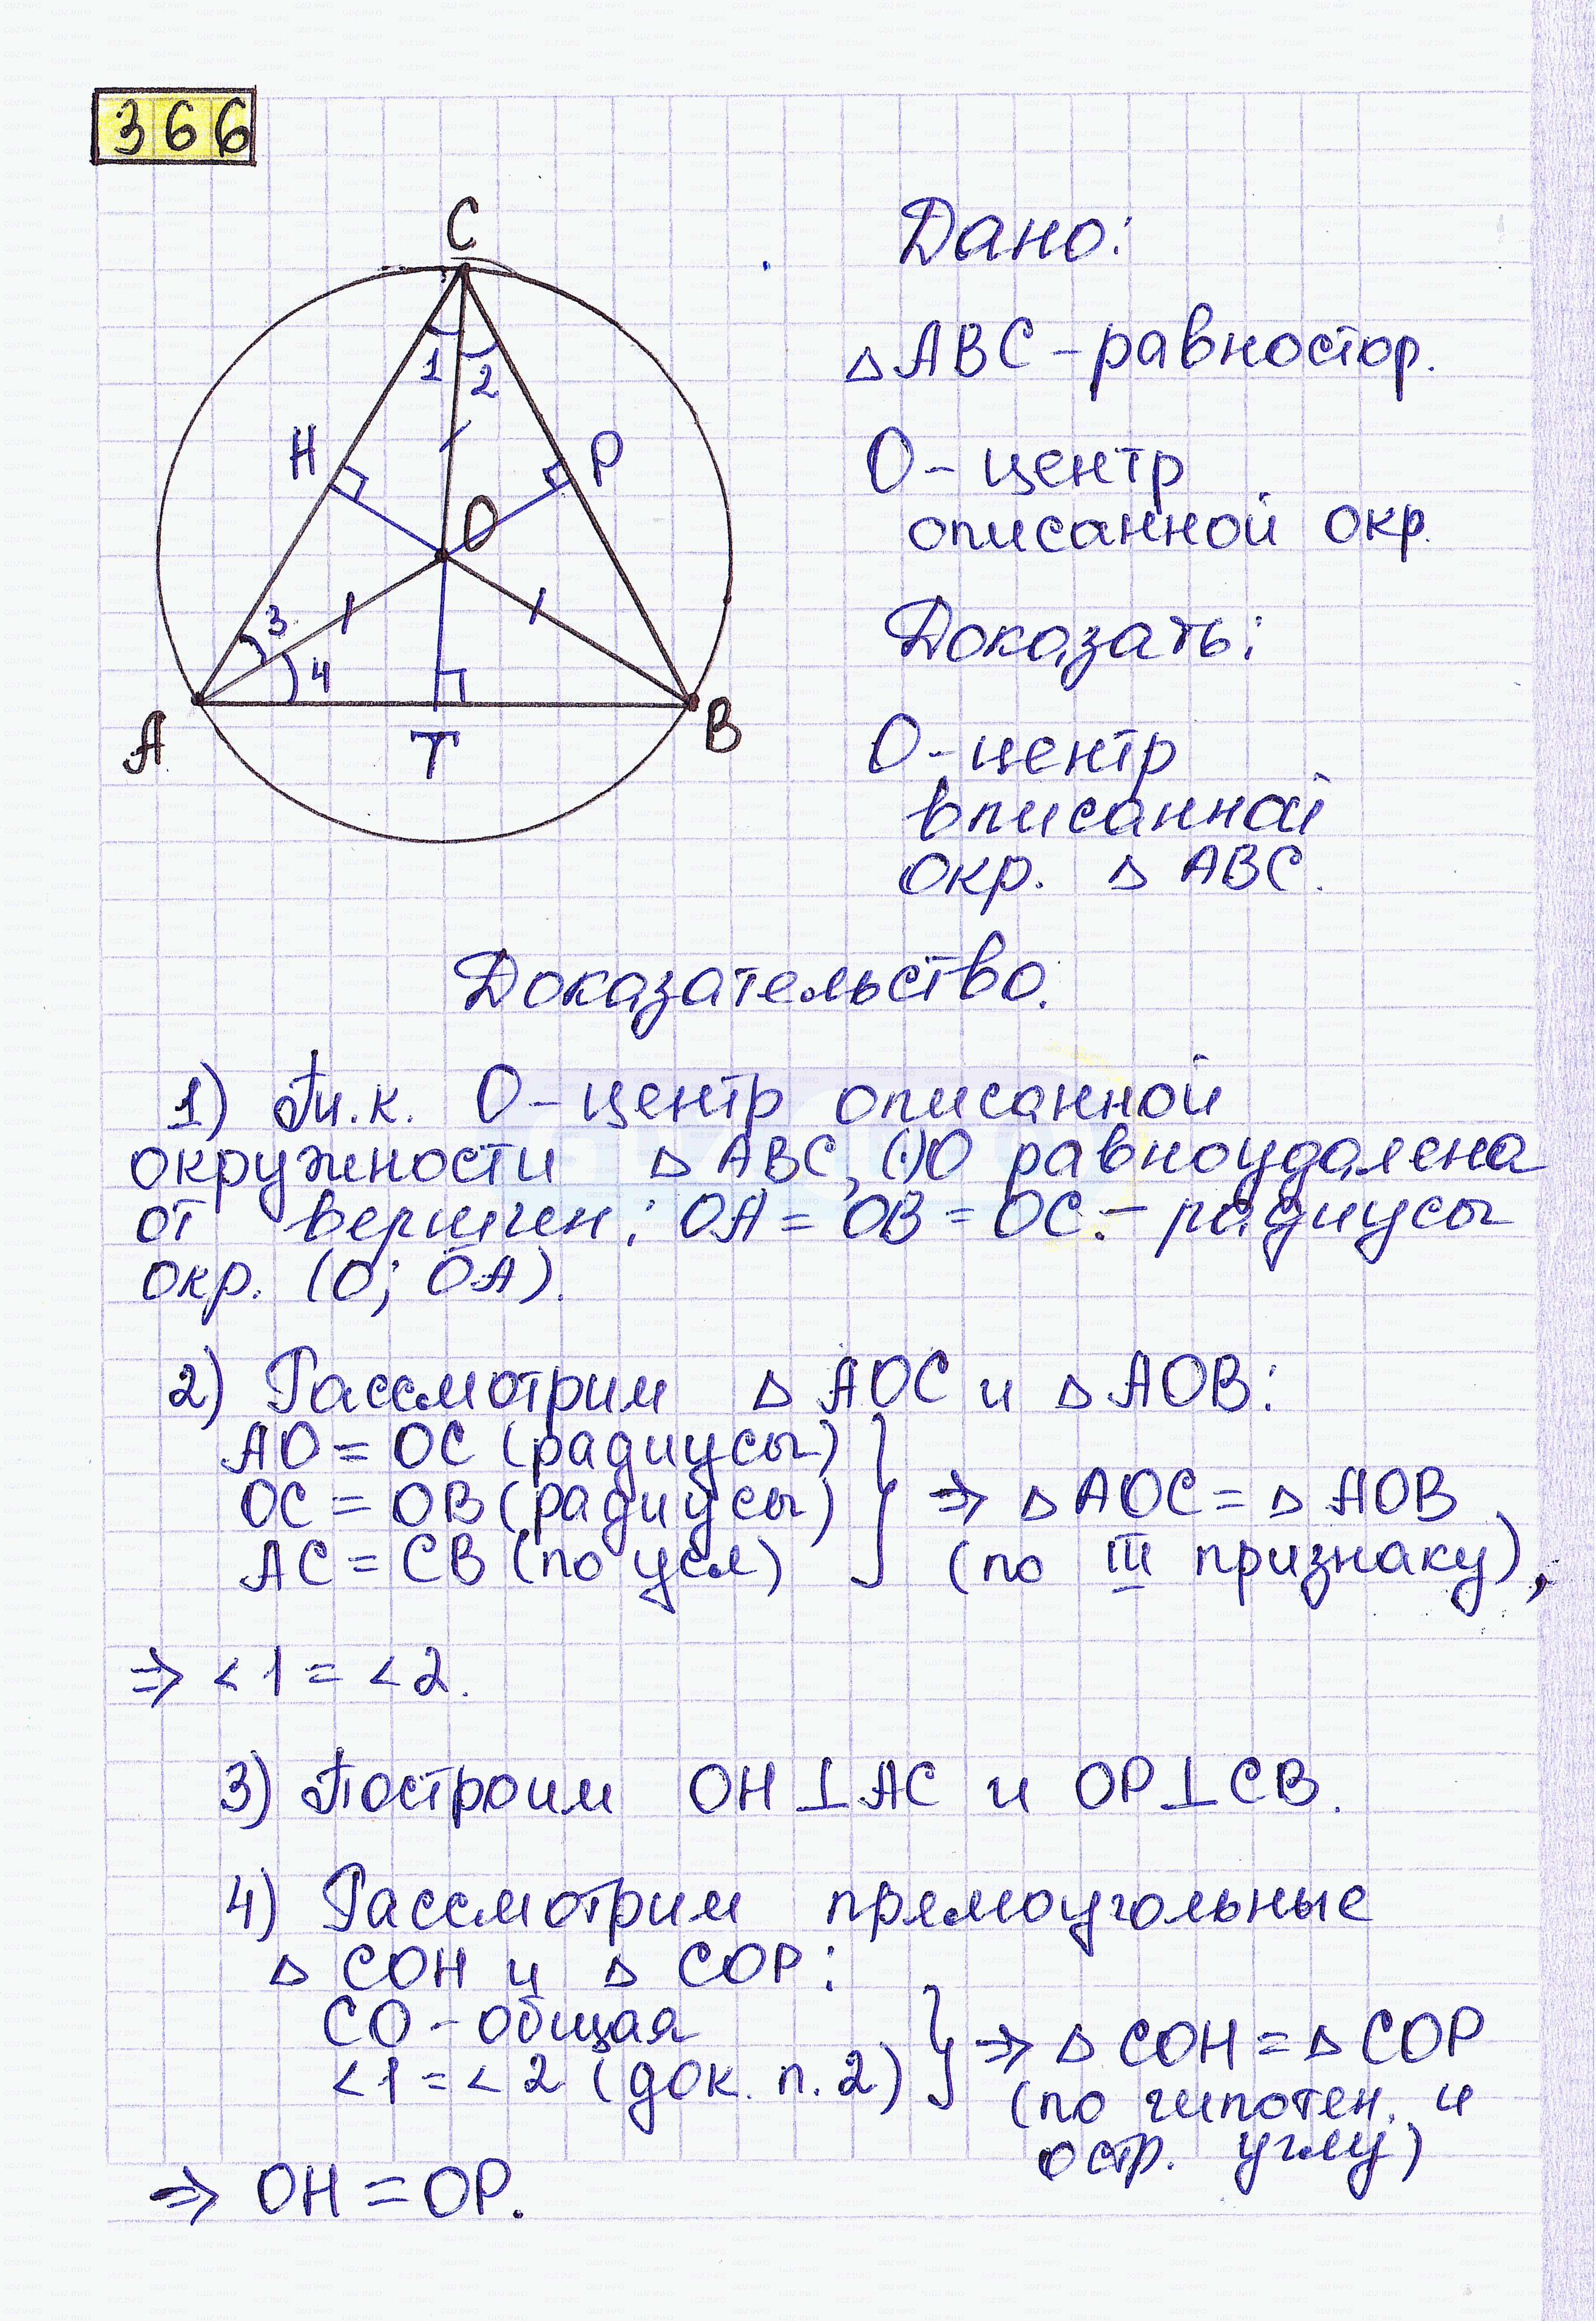 366
C
Дано:
△ABC – равностор.
1 2
H P
O – центр
O
описанной окр.
3
Доказать:
4
A T B
O – центр
вписанной
окр. △ ABC.
Доказательство.
1) Т.к. O – центр описанной
окружности △ ABC, (·)O равноудалена
от вершин: OA = OB = OC. – радиусы
окр. (O; OA).
2) Рассмотрим △ AOC и △ AOB:
AO = OC (радиусы)
OC = OB (радиусы) } ⇒ △ AOC = △ AOB
AC = CB (по усл) (по III признаку),
⇒ <1 = <2.
3) Построим OH⊥AC и OP⊥CB.
4) Рассмотрим прямоугольные
△ COH и △ COP:
CO – общая } ⇒ △ COH = △ COP
<1 = <2 (док. п. 2) (по гипотен. и
остр. углу)
⇒ OH = OP.